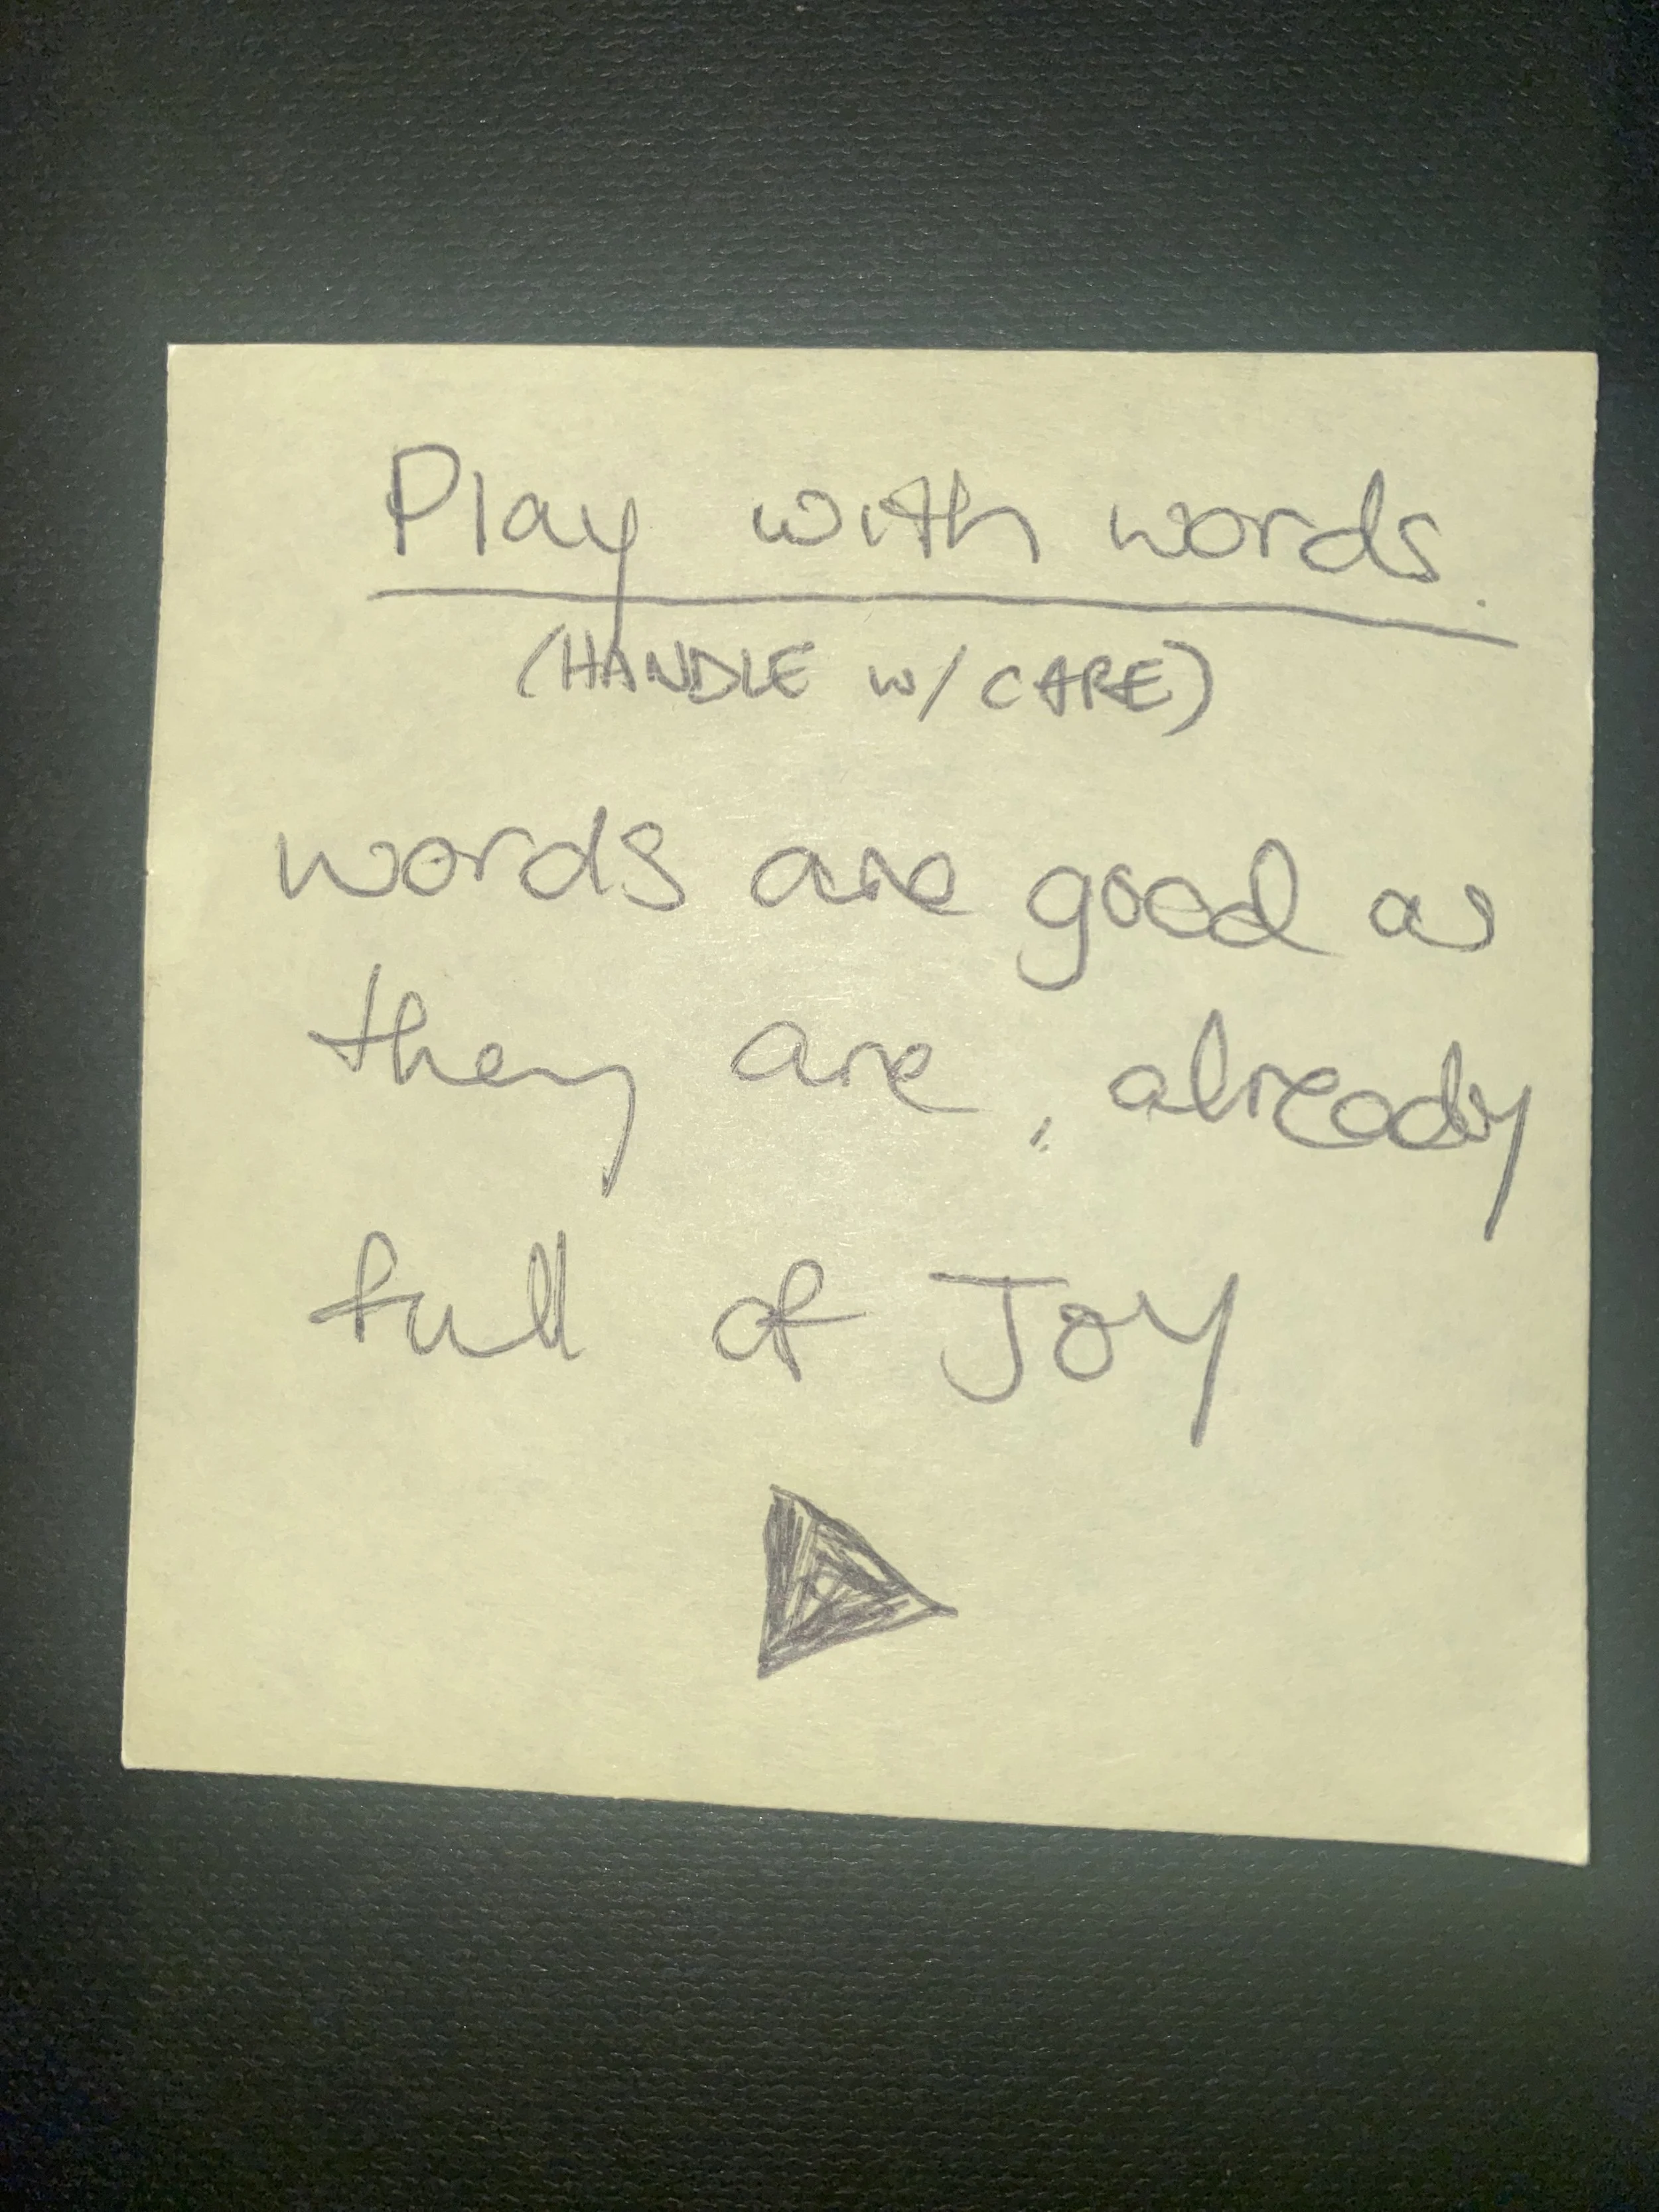 Play with words.
(HANDLE w/ CARE)
words are good as
they are, already
full of Joy